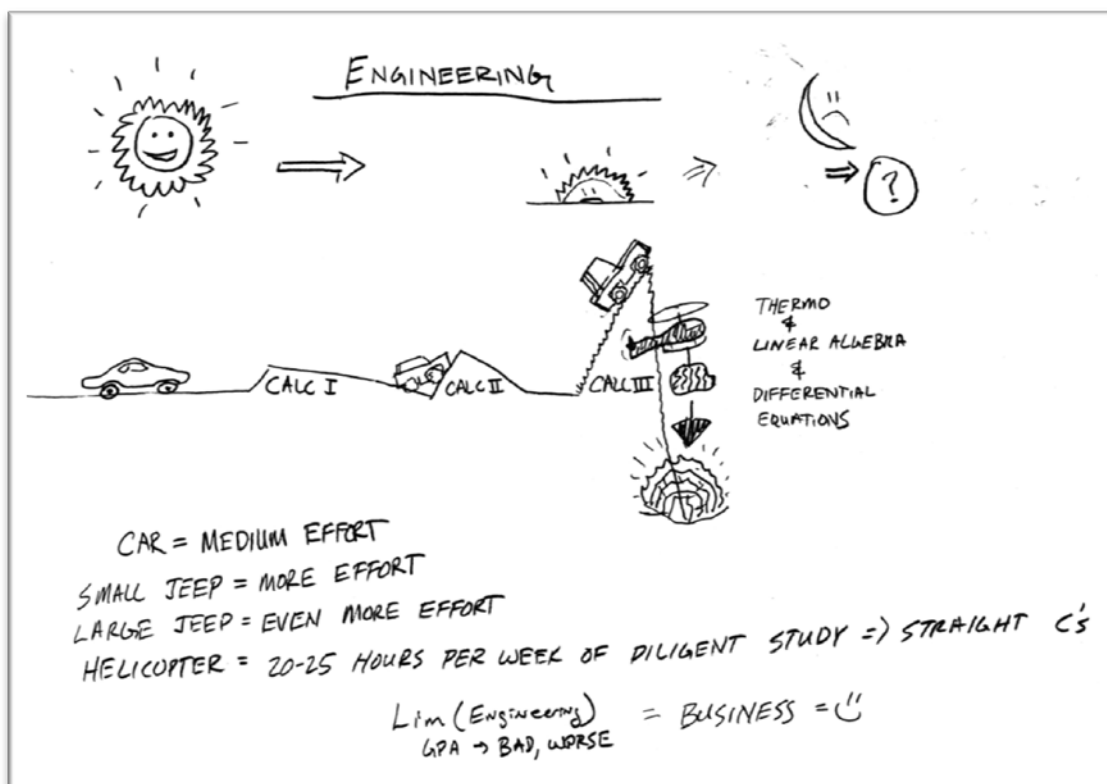 ENGINEERING
?
CALC I
CALC II
CALC III
THERMO
&
LINEAR ALGEBRA
&
DIFFERENTIAL
EQUATIONS
CAR = MEDIUM EFFORT
SMALL JEEP = MORE EFFORT
LARGE JEEP = EVEN MORE EFFORT
HELICOPTER = 20-25 HOURS PER WEEK OF DILIGENT STUDY => STRAIGHT C's
Lim (Engineering) = BUSINESS =
GPA → BAD, WORSE